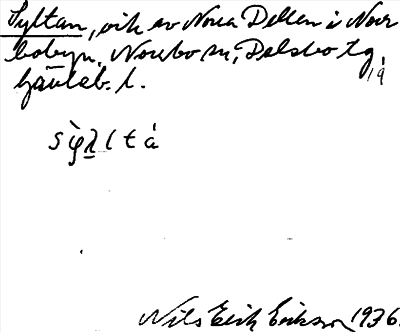 Syltan, vik av Norra Dellen i Norr
bobyn, Norrbo sn, Delsbo tg
Gävleb. l.
Nils Erik Eriksson 1936.